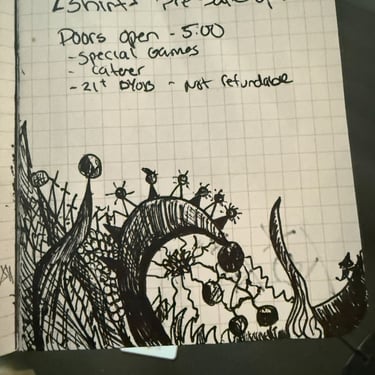 Tshirts Pre-sale
Doors open - 5:00
- Special Games
- Caterer
- 21+ BYOB - Not refundable